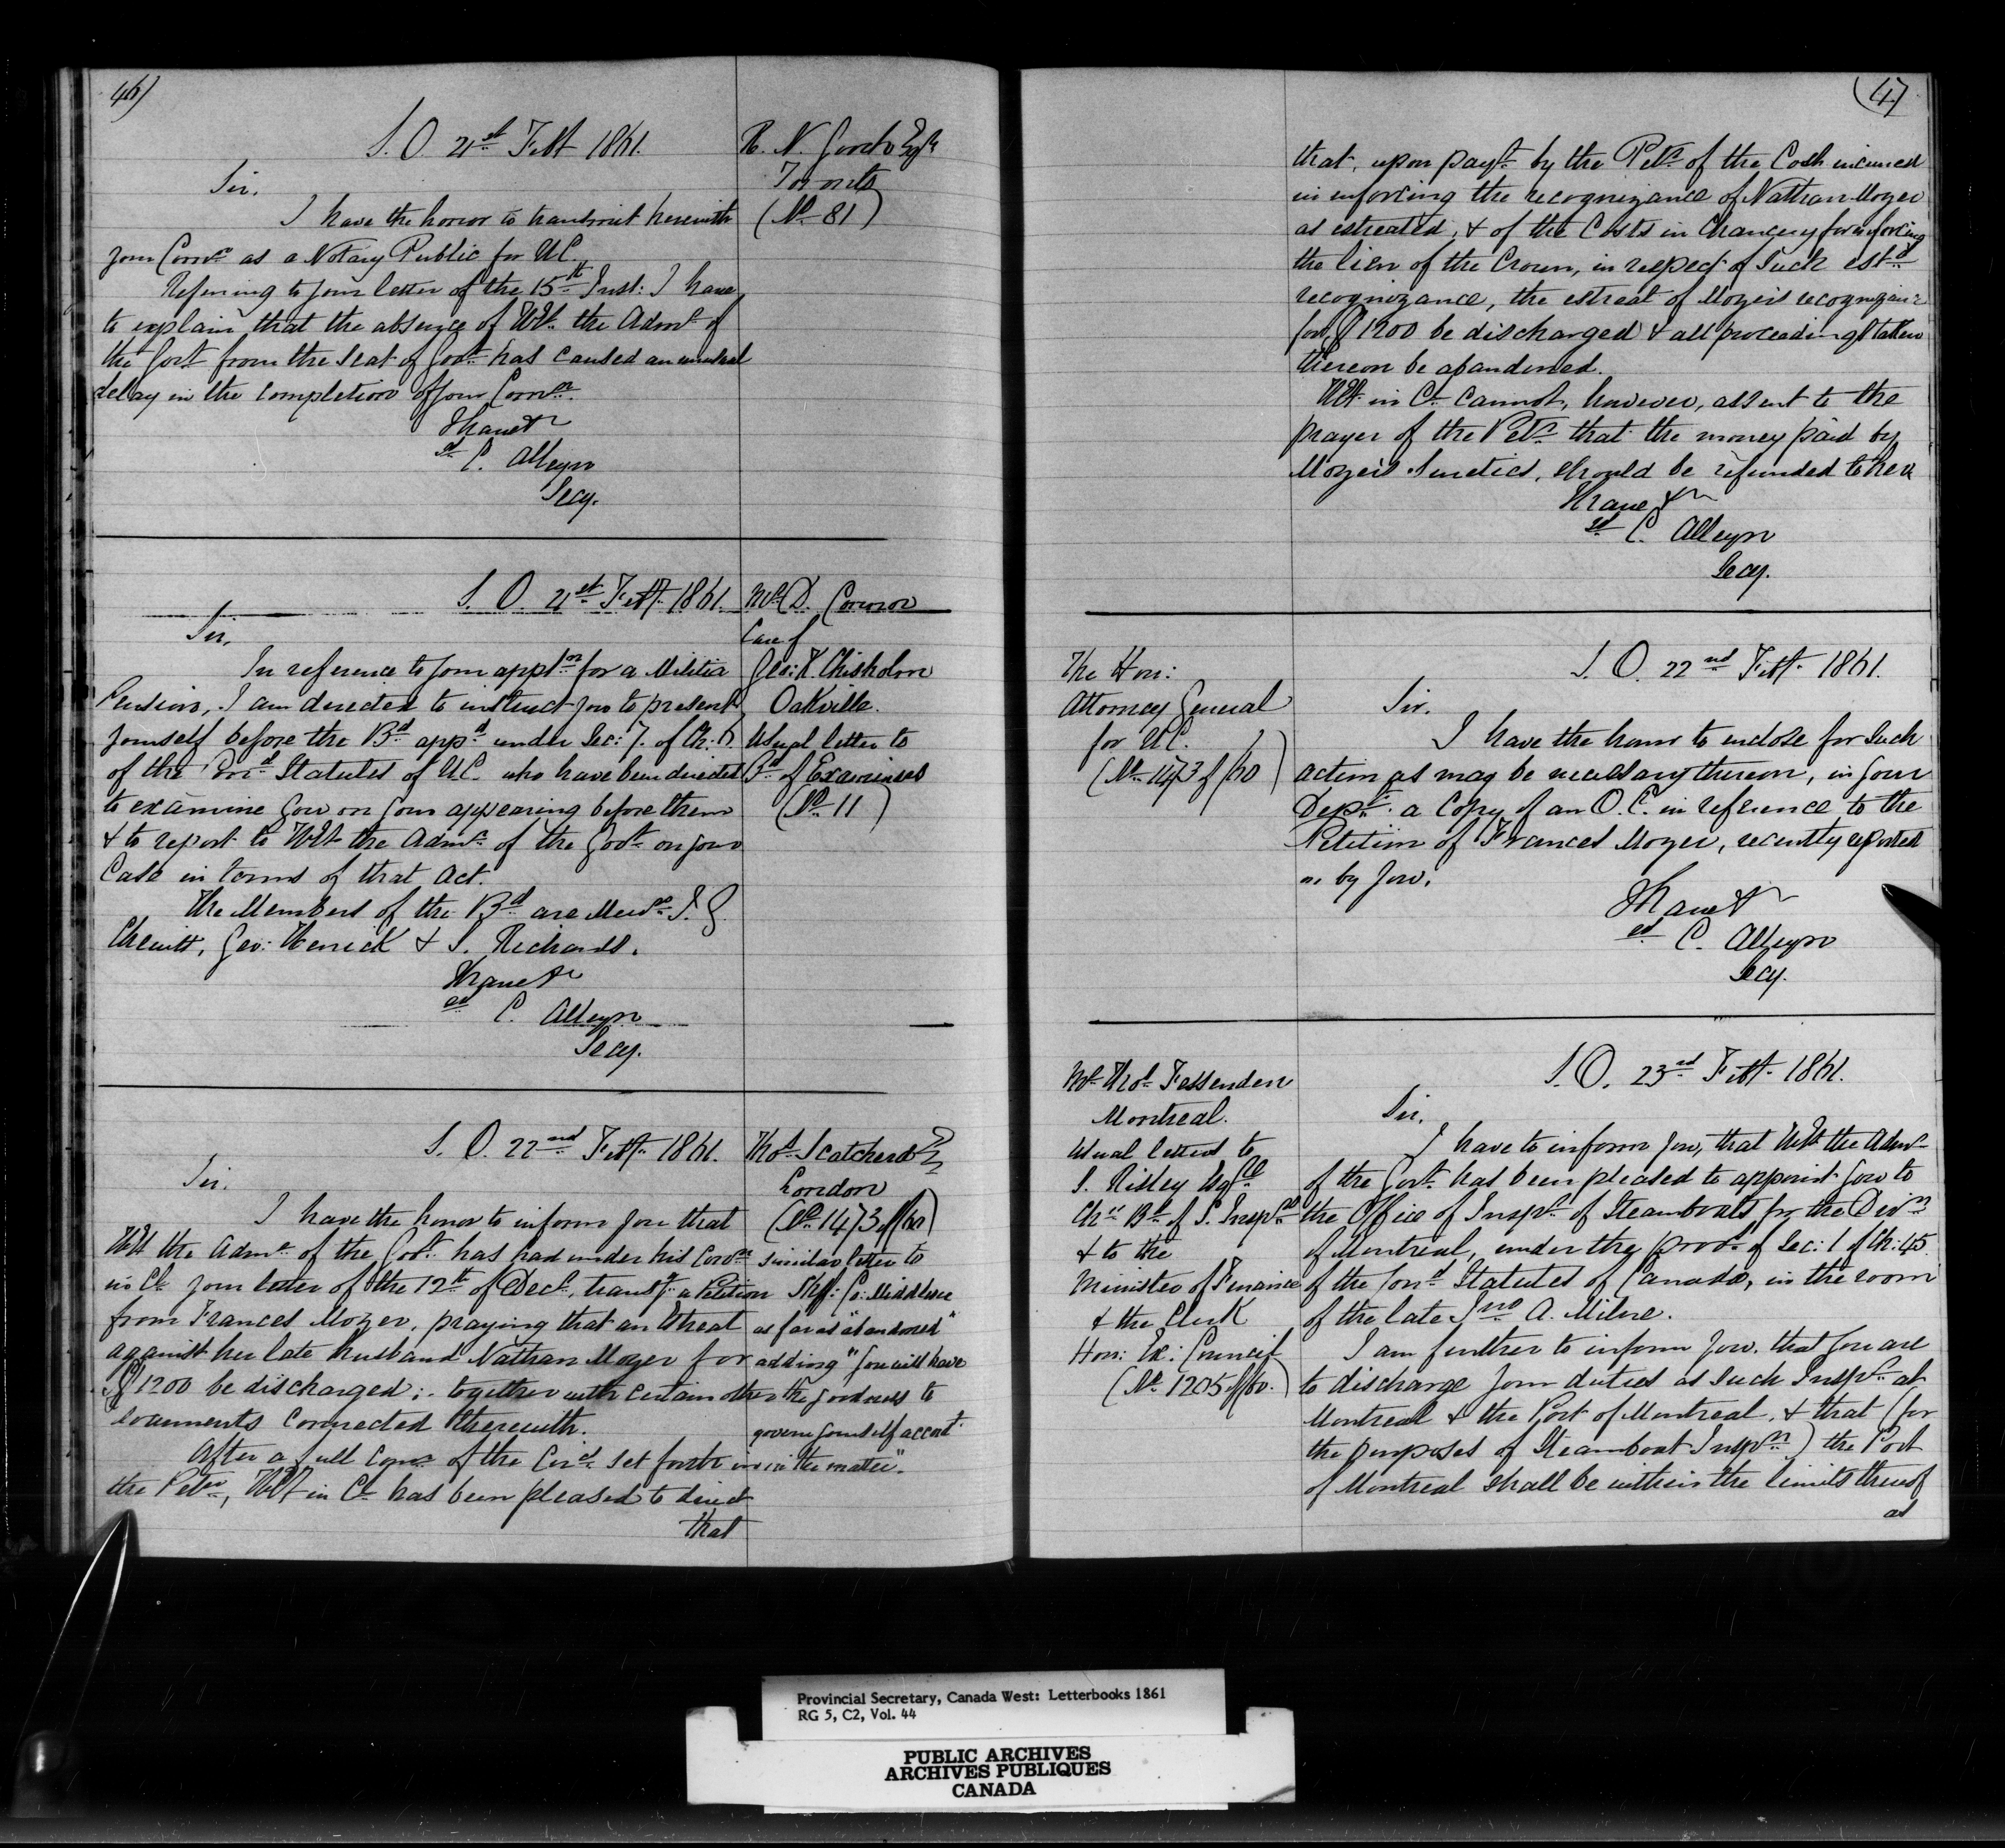 46)
S. O. 21st Feb. 1861.
Sir,
I have the honor to transmit herewith
your Comn. as a Notary Public for U.C.
Referring to your letter of the 15th Inst: I have
to explain that the absence of H.E. the Admr. of
the Govt. from the Seat of Govt. has caused an unusual
delay in the completion of your Comn.
I have &c
sd. C. Alleyn
Secy.
R. N. Esqre
Toronto
(No. 81)
S. O. 21st Feb. 1861.
Sir,
In reference to your appln. for a Militia
Pension, I am directed to instruct you to present
yourself before the Bd. appd. under Sec: 7. of Ch:
of the Cond. Statutes of U.C. who have been directed
to examine you on your appearing before them
& to report to H.E. the Admr. of the Govt. on your
Case in terms of that Act.
The Members of the Bd. are Messrs. J. G.
Chewitt, Geo: Herrick & S. Richards.
I have &c
sd. C. Alleyn
Secy.
Mr. D. Connor
Care of
Geo: K. Chisholm
Oakville.
Usual letter to
Bd. of Examiners
(No. 11)
S. O. 22nd Feb. 1861.
Sir,
I have the honor to inform you that
H.E. the Admr. of the Govt. has had under his Conn.
in Cl. your letter of the 12th of Decr. transg. a Petition
from Frances Moyer, praying that an Estreat
against her late husband Nathan Moyer for
$1200 be discharged; together with certain other
documents connected therewith.
After a full Conn. of the Circs. set forth in
the Petn., H.E. in Cl. has been pleased to direct
that
Thos. Scatcherd
London
(No. 1473 of/60)
similar letter to
Shff: Co: Middlesex
as far as "abandoned"
adding "you will have
the goodness to
govern yourself accord.
in the matter".
(47
that, upon payt. by the Petr. of the Costs incurred
in enforcing the recognizance of Nathan Moyer
as estreated, & of the Costs in Chancery for enforcing
the lien of the Crown, in respect of such estd.
recognizance, the estreat of Moyer's recognizance
for $1200 be discharged & all proceedings taken
thereon be abandoned.
H.E. in Cl. cannot, however, assent to the
prayer of the Petr. that the money paid by
Moyer's Sureties, should be refunded to her.
I have &c
sd. C. Alleyn
Secy.
The Hon:
Attorney General
for U.C.
(No. 1473 of/60)
S. O. 22nd Feb. 1861.
Sir,
I have the honor to enclose for such
action as may be necessary thereon, in your
Dept. a Copy of an O.C. in reference to the
Petition of Frances Moyer, recently reported
on by you.
I have &c
sd. C. Alleyn
Secy.
Mr. Thos. Fessenden
Montreal.
Usual letters to
S. Risley Esqre
Chn. Bd. of S. Inspn.
& to the
Minister of Finance
& the Clerk
Hon: Ex: Council
(No. 1205 of/60.)
S. O. 23rd Feb. 1861.
Sir,
I have to inform you, that H.E. the Admr.
of the Govt. has been pleased to appoint you to
the Office of Inspr. of Steamboats for the Divn.
of Montreal, under the provs. of Sec: 1 of Ch: 45
of the Cond. Statutes of Canada, in the room
of the late Jno. A. Milne.
I am further to inform you, that you are
to discharge your duties as such Inspr. at
Montreal & the Port of Montreal, & that (for
the purposes of Steamboat Inspn.) the Port
of Montreal shall be within the limits thereof
as
Provincial Secretary, Canada West: Letterbooks 1861
RG 5, C2, Vol. 44
PUBLIC ARCHIVES
ARCHIVES PUBLIQUES
CANADA